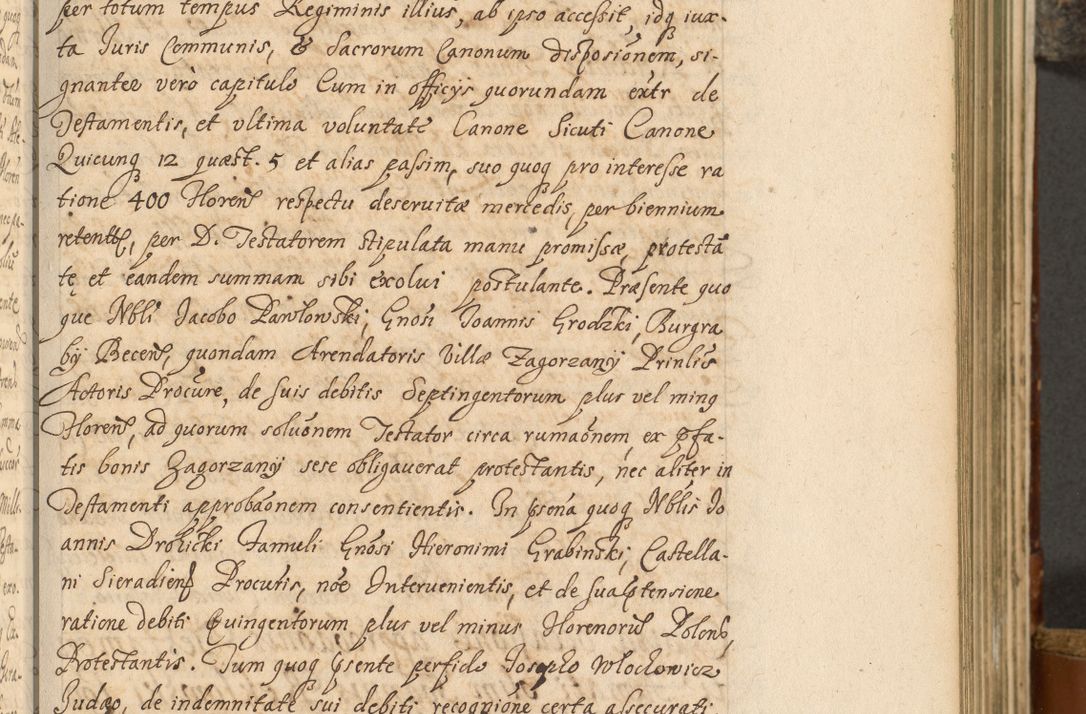 per totum tempus Regiminis illius, ab ipso accessit, idq iux-
ta Iuris Communis, & Sacrorum Canonum disposiõnem, si-
gnanter verò capitulo Cum in officijs quorundam extr de
Testamentis, et vltima voluntate Canone Sicuti Canone
Quicunq 12 quæst. 5 et alias passim, suo quoq pro interesse ra
tione 400 Floren respectu deservitæ mercedis, per biennium
retentæ, per D. Testatorem stipulata manu promissæ, protestã
tę et eandem summam sibi exolui postulante. Præsente quo
que Nbli Jacobo Pawlowski, Gnosi Joannis Grodzki, Burgra
bij Becen, quondam Arendatoris Villæ Zagorzany Prinlis
Actoris Procure, de suis debitis Septingentorum plus vel minq
Floren, ad quorum soluõnem Testator circa rumaõnem, ex pfa-
tis bonis Zagorzany sese obligauerat protestantis, nec aliter in
Testamenti approbaõnem consentientis. In psẽna quoq Nblis Jo
annis Drohicki Famuli Gnosi Hieronimi Grabinski, Castella-
ni Sieradien Procutis, nõe Interuenientis, et de sua ptensione
ratione debiti Quingentorum plus vel minus Florenorum Polon,
Protestantis. Tum quoq psente perfido Josepho Wlochowicz
Judæo, de indemnitate sui debiti recognione certa assecurati